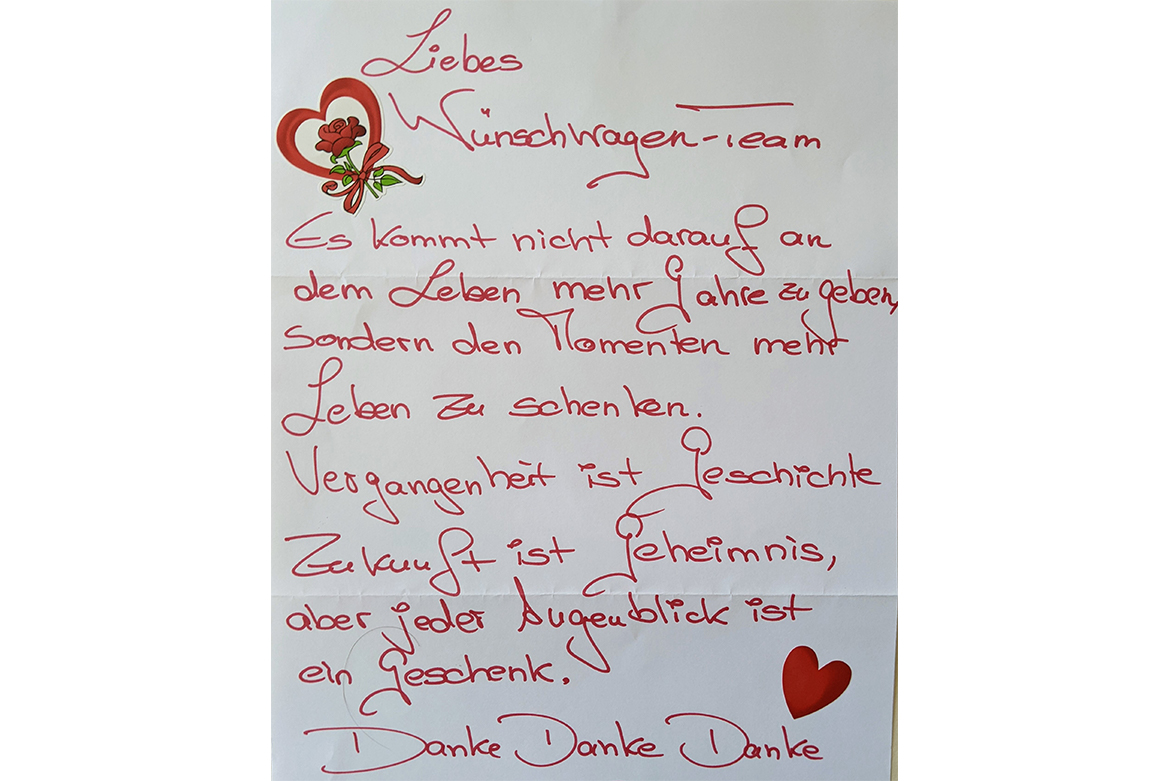 Liebes
Wünschwagen-Team
Es kommt nicht darauf an
dem Leben mehr Jahre zu geben,
sondern den Momenten mehr
Leben zu schenken.
Vergangenheit ist Geschichte
Zukunft ist Geheimnis,
aber jeder Augenblick ist
ein Geschenk.
Danke Danke Danke